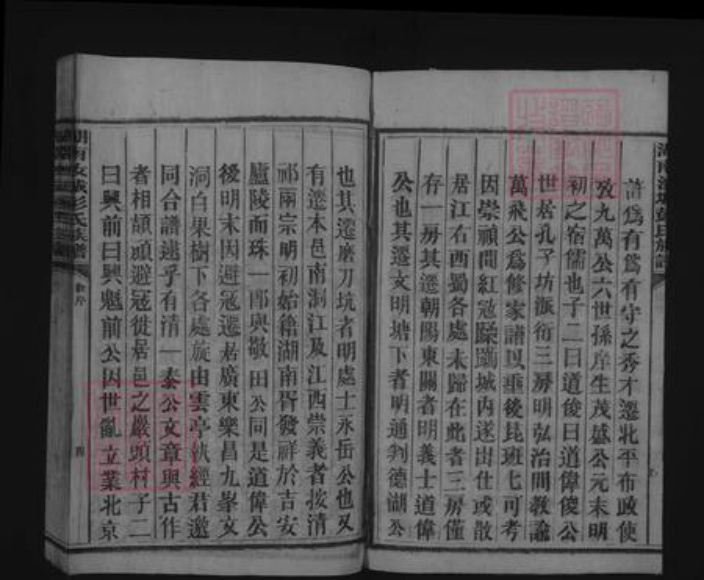 許為有為有守之秀才遷北平布政使
攷九萬公六世孫庠生茂盛公元末明
初之宿儒也子二曰道俊曰道偉俊公
世居孔子坊派衍三房明弘治間教諭
萬飛公為修家譜以垂後昆班七可考
因崇禎間紅冠蹂躪城內遂出仕或散
居江右西蜀各處未歸在此者三房僅
存一房其遷朝陽東關者明義士道偉
公也其遷文明塘下者明通判德湖公
也其遷磨刀坑者明處士永岳公也又
有遷本邑南洞江及江西崇義者按清
祁兩宗明初始籍湖南皆發祥於吉安
廬陵而珠一郎與敬田公同是道偉公
後明末因避冠遷居廣東樂昌九峯文
洞白果樹下各處旋由雲亭執經君邀
同合譜逮乎有清一泰公文章與古作
者相頡頏避冠徙居邑之嚴頭村子二
曰興前曰興魁前公因世亂立業北京
彭氏族譜
四